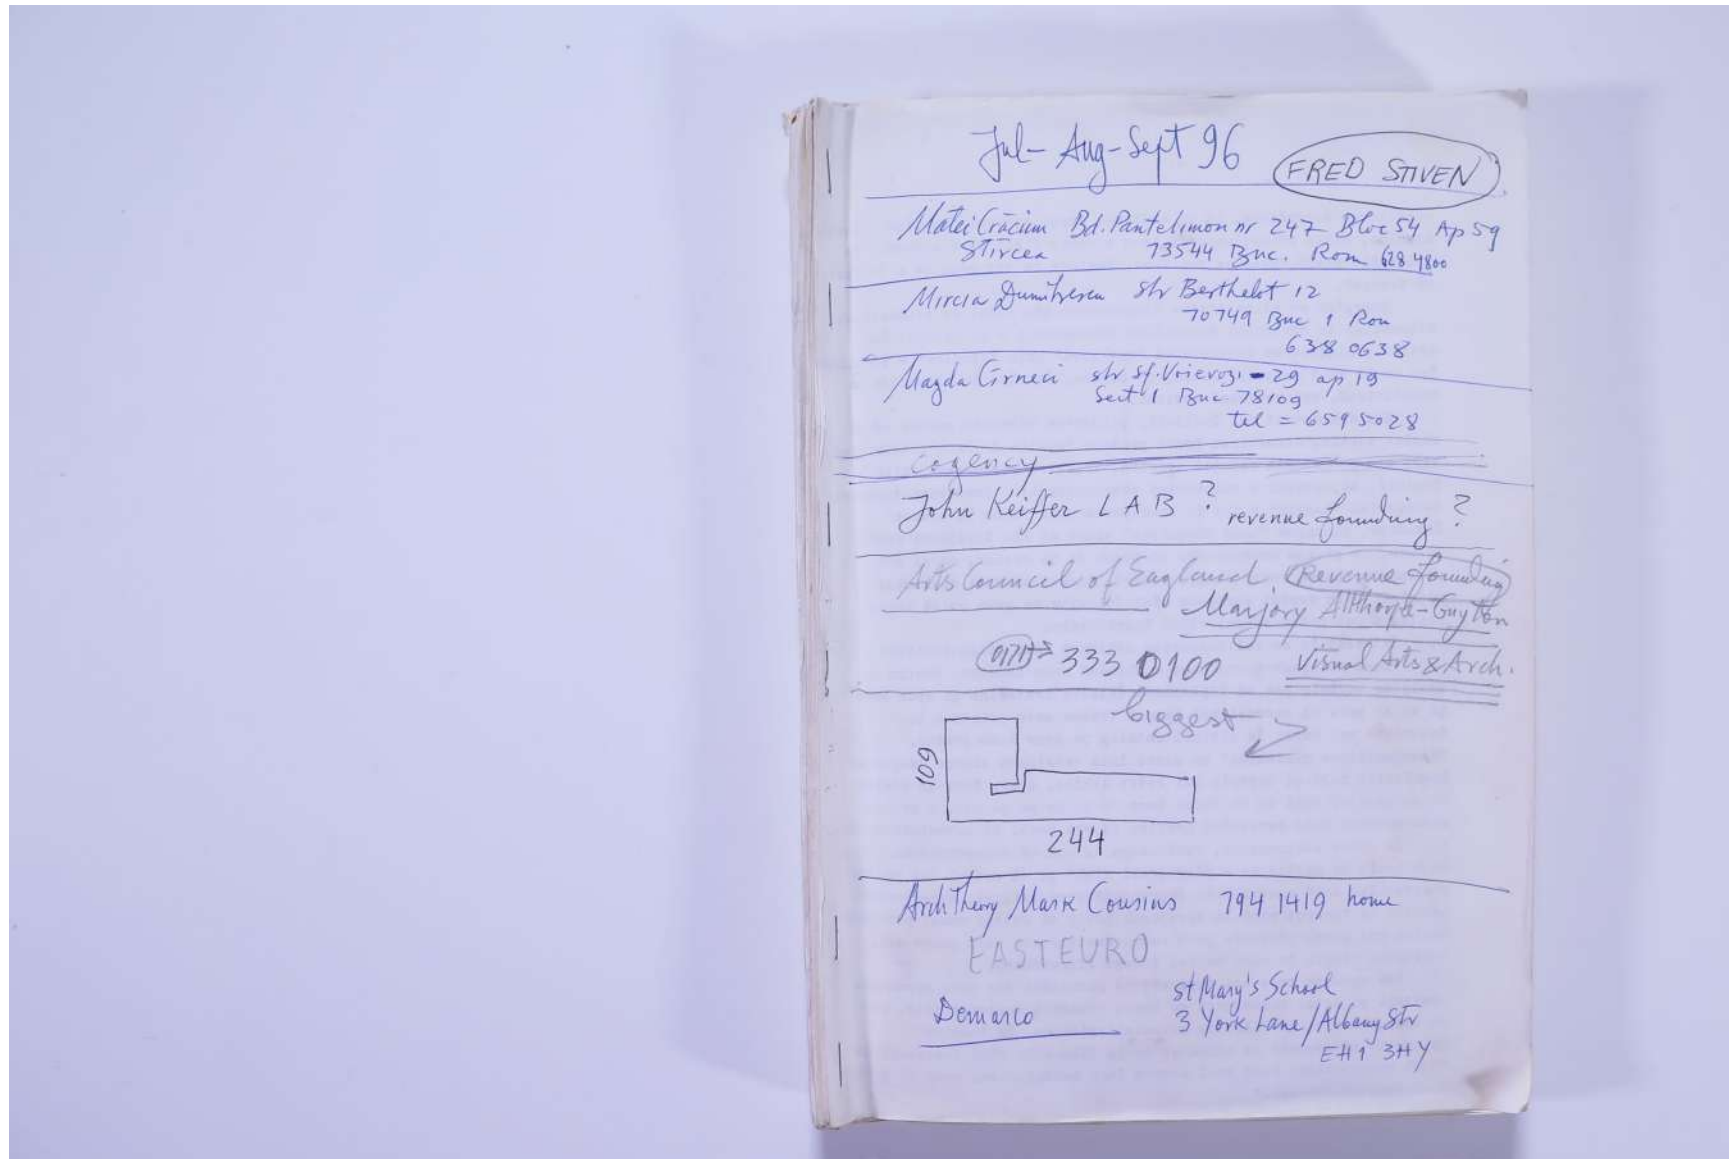 Jul-Aug-Sept 96 FRED STIVEN
Matei Crăciun Bd. Pantelimon nr 247 Bloc 54 Ap 59
Stircea 73544 Buc. Rom 628 4800
Mircia Dumitrescu str Berthelot 12
70749 Buc 1 Rom
638 0638
Magda Cirneci str Sf. 29 ap 19
Sect 1 Buc 78109
tel = 659 5028
cogency
John Keiffer LAB ? revenue founding ?
Arts Council of England Revenue founding
Marjory Allthorpe-Guyton
0171 333 0100 Visual Arts & Arch.
biggest
109
244
Arch Theory Mark Cousins 794 1419 home
EASTEURO
St Mary's School
Demarco 3 York Lane/Albany Str
EH1 3HY